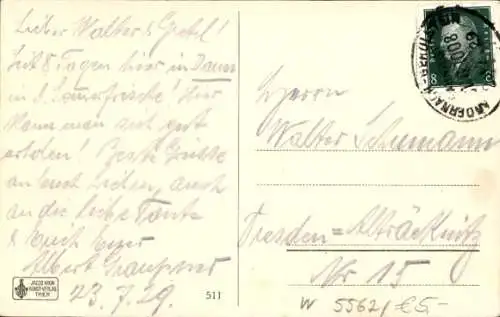 Lieber Walter & Gretel!
Seit 8 Tagen hier in Daun
in d. Sommerfrische! Hier
kann man sich gut
erholen! Beste Grüsse
an Euch Lieben, auch
an die liebe Tante
& Euch Euer
Albert Graupner
23.7.29.
JACOB KOCH
KUNST-VERLAG
TRIER
511
8
8
Herrn
Walter Schumann
Dresden=Alträcknitz
Nr 15
W 5562/€5.-